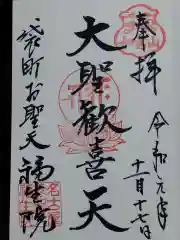 奉拝
令和元年
十一月十七日
大聖歓喜天
袋町お聖天
福生院